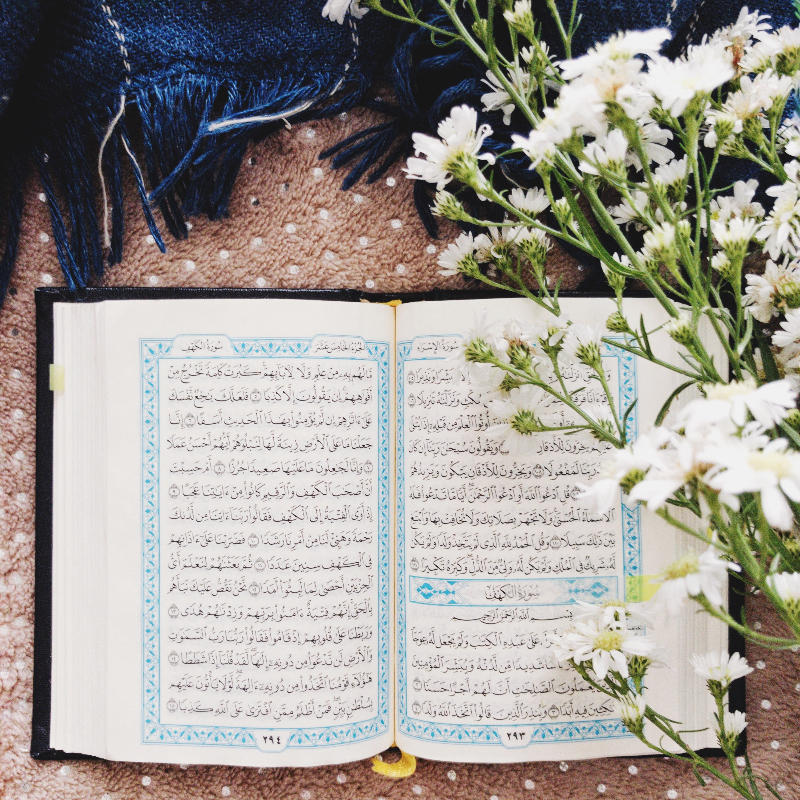 سُورَةُ الإِسْرَاءِ
مُبَشِّرًا وَنَذِيرًا ١٠٥
مُكْثٍ وَنَزَّلْنَٰهُ تَنزِيلًا ١٠٦
أُوتُوا۟ ٱلْعِلْمَ مِن قَبْلِهِۦٓ إِذَا يُتْلَىٰ
يَخِرُّونَ لِلْأَذْقَانِ وَيَقُولُونَ سُبْحَٰنَ رَبِّنَآ إِن كَانَ
رَبِّنَا لَمَفْعُولًا ١٠٨ وَيَخِرُّونَ لِلْأَذْقَانِ يَبْكُونَ وَيَزِيدُهُمْ
قُلِ ٱدْعُوا۟ ٱللَّهَ أَوِ ٱدْعُوا۟ ٱلرَّحْمَٰنَ أَيًّا مَّا تَدْعُوا۟ فَلَهُ
ٱلْأَسْمَآءُ ٱلْحُسْنَىٰ وَلَا تَجْهَرْ بِصَلَاتِكَ وَلَا تُخَافِتْ بِهَا وَٱبْتَغِ
بَيْنَ ذَٰلِكَ سَبِيلًا ١١٠ وَقُلِ ٱلْحَمْدُ لِلَّهِ ٱلَّذِى لَمْ يَتَّخِذْ وَلَدًا وَلَمْ يَكُن
لَّهُۥ شَرِيكٌ فِى ٱلْمُلْكِ وَلَمْ يَكُن لَّهُۥ وَلِىٌّ مِّنَ ٱلذُّلِّ وَكَبِّرْهُ تَكْبِيرًۢا ١١١
سُورَةُ الكَهْفِ
بِسْمِ ٱللَّهِ ٱلرَّحْمَٰنِ ٱلرَّحِيمِ
عَلَىٰ عَبْدِهِ ٱلْكِتَٰبَ وَلَمْ يَجْعَل لَّهُۥ عِوَجَا ١
شَدِيدًا مِّن لَّدُنْهُ وَيُبَشِّرَ ٱلْمُؤْمِنِينَ
يَعْمَلُونَ ٱلصَّٰلِحَٰتِ أَنَّ لَهُمْ أَجْرًا حَسَنًا ٢
مَّٰكِثِينَ فِيهِ أَبَدًا ٣ وَيُنذِرَ ٱلَّذِينَ قَالُوا۟ ٱتَّخَذَ ٱللَّهُ وَلَدًا ٤
٢٩٣
الجُزْءُ الخَامِسَ عَشَرَ
سُورَةُ الكَهْفِ
مَّا لَهُم بِهِۦ مِنْ عِلْمٍ وَلَا لِءَابَآئِهِمْ كَبُرَتْ كَلِمَةً تَخْرُجُ مِنْ
أَفْوَٰهِهِمْ إِن يَقُولُونَ إِلَّا كَذِبًا ٥ فَلَعَلَّكَ بَٰخِعٌ نَّفْسَكَ
عَلَىٰٓ ءَاثَٰرِهِمْ إِن لَّمْ يُؤْمِنُوا۟ بِهَٰذَا ٱلْحَدِيثِ أَسَفًا ٦ إِنَّا
جَعَلْنَا مَا عَلَى ٱلْأَرْضِ زِينَةً لَّهَا لِنَبْلُوَهُمْ أَيُّهُمْ أَحْسَنُ عَمَلًا
٧ وَإِنَّا لَجَٰعِلُونَ مَا عَلَيْهَا صَعِيدًا جُرُزًا ٨ أَمْ حَسِبْتَ
أَنَّ أَصْحَٰبَ ٱلْكَهْفِ وَٱلرَّقِيمِ كَانُوا۟ مِنْ ءَايَٰتِنَا عَجَبًا ٩
إِذْ أَوَى ٱلْفِتْيَةُ إِلَى ٱلْكَهْفِ فَقَالُوا۟ رَبَّنَآ ءَاتِنَا مِن لَّدُنكَ
رَحْمَةً وَهَيِّئْ لَنَا مِنْ أَمْرِنَا رَشَدًا ١٠ فَضَرَبْنَا عَلَىٰٓ ءَاذَانِهِمْ
فِى ٱلْكَهْفِ سِنِينَ عَدَدًا ١١ ثُمَّ بَعَثْنَٰهُمْ لِنَعْلَمَ أَىُّ
ٱلْحِزْبَيْنِ أَحْصَىٰ لِمَا لَبِثُوٓا۟ أَمَدًا ١٢ نَّحْنُ نَقُصُّ عَلَيْكَ نَبَأَهُم
بِٱلْحَقِّ إِنَّهُمْ فِتْيَةٌ ءَامَنُوا۟ بِرَبِّهِمْ وَزِدْنَٰهُمْ هُدًى ١٣
وَرَبَطْنَا عَلَىٰ قُلُوبِهِمْ إِذْ قَامُوا۟ فَقَالُوا۟ رَبُّنَا رَبُّ ٱلسَّمَٰوَٰتِ
وَٱلْأَرْضِ لَن نَّدْعُوَا۟ مِن دُونِهِۦٓ إِلَٰهًا لَّقَدْ قُلْنَآ إِذًا شَطَطًا ١٤
هَٰٓؤُلَآءِ قَوْمُنَا ٱتَّخَذُوا۟ مِن دُونِهِۦٓ ءَالِهَةً لَّوْلَا يَأْتُونَ عَلَيْهِم
بِسُلْطَٰنٍۭ بَيِّنٍ فَمَنْ أَظْلَمُ مِمَّنِ ٱفْتَرَىٰ عَلَى ٱللَّهِ كَذِبًا ١٥
٢٩٤